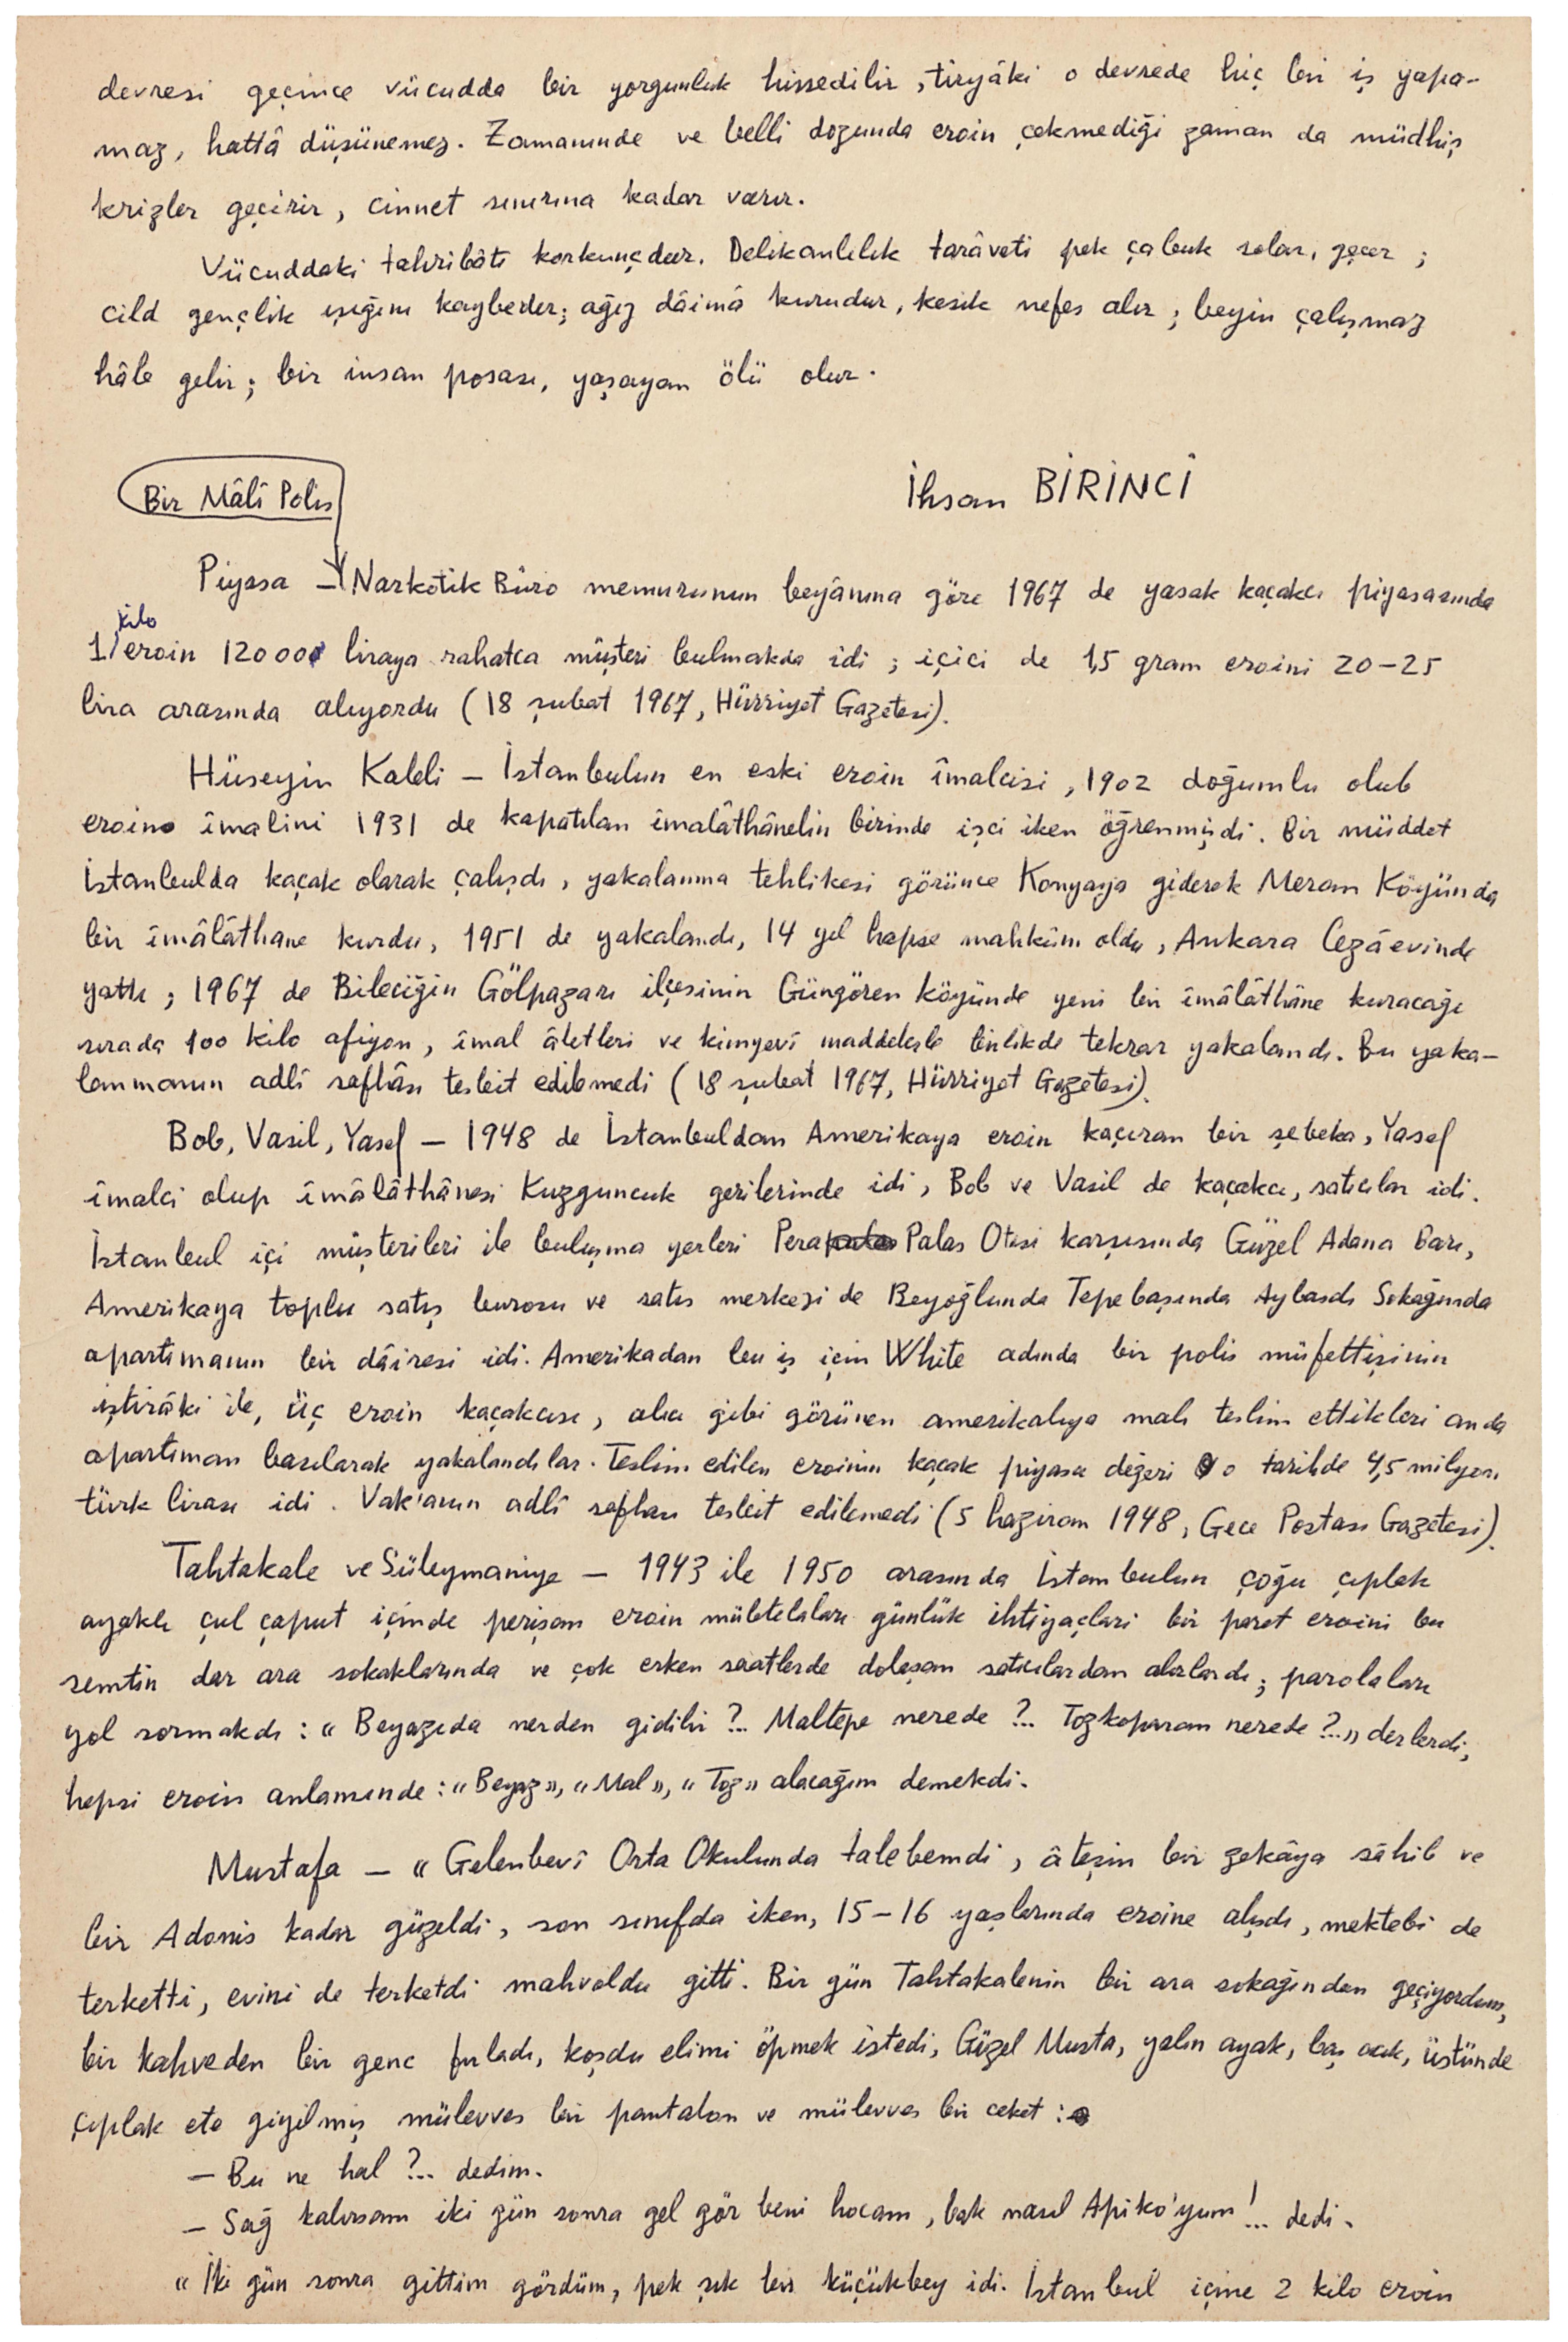 devresi geçince vücudda bir yorgunluk hissedilir, tiryâki o devrede hiç bir iş yapa-
maz, hattâ düşünemez. Zamanında ve belli dozunda eroin çekmediği zaman da müdhiş
krizler geçirir, cinnet sınırına kadar varır.
Vücuddaki tahribâtı korkunçdur. Delikanlılık tarâveti pek çabuk solar, geçer ;
cild gençlik ışığını kaybeder; ağız dâimâ kurudur, kesik nefes alır ; beyin çalışmaz
hâle gelir ; bir insan posası, yaşayan ölü olur.
İhsan BİRİNCİ
Bir Mâlî Polis
Piyasa — Narkotik Büro memurunun beyânına göre 1967 de yasak kaçakcı piyasasında
1 kilo eroin 120000 liraya rahatca müşteri bulmakda idi ; içici de 1,5 gram eroini 20–25
lira arasında alıyordu (18 şubat 1967, Hürriyet Gazetesi).
Hüseyin Kaleli — İstanbulun en eski eroin îmalcisi, 1902 doğumlu olub
eroin îmalini 1931 de kapatılan îmalâthânelin birinde işci iken öğrenmişdi. Bir müddet
İstanbulda kaçak olarak çalışdı, yakalanma tehlikesi görünce Konyaya giderek Meram Köyünda
bir îmâlâthane kurdu, 1951 de yakalandı, 14 yıl hapse mahkûm oldu, Ankara Cezâevinde
yattı ; 1967 de Bileciğin Gölpazarı ilçesinin Güngören köyünde yeni bir îmâlâthâne kuracağı
sırada 100 kilo afiyon, îmal âletleri ve kimyevî maddelerle birlikde tekrar yakalandı. Bu yaka-
lanmanın adlî safhâsı tesbit edilemedi (18 şubat 1967, Hürriyet Gazetesi).
Bob, Vasil, Yasef — 1948 de İstanbuldan Amerikaya eroin kaçıran bir şebeke, Yasef
îmalci olup îmâlâthânesi Kuzguncuk gerilerinde idi, Bob ve Vasil de kaçakcı, satıcılar idi.
İstanbul içi müşterileri ile buluşma yerleri Pera Palas Oteli karşısında Güzel Adana Barı,
Amerikaya toplu satış burosu ve satış merkezi de Beyoğlunda Tepebaşında Aybasdı Sokağında
apartımanın bir dâiresi idi. Amerikadan bu iş için White adında bir polis müfettişinin
iştirâki ile, üç eroin kaçakcısı, alıcı gibi görünen amerikalıya malı teslim ettikleri anda
apartıman basılarak yakalandılar. Teslim edilen eroinin kaçak piyasa değeri o tarihde 4,5 milyon
türk lirası idi. Vak'anın adlî safhası tesbit edilemedi (5 haziran 1948, Gece Postası Gazetesi).
Tahtakale ve Süleymaniye — 1943 ile 1950 arasında İstanbulun çoğu çıplak
ayaklı çul çaput içinde perişan eroin mübtelaları günlük ihtiyaçları bir paket eroini bu
semtin dar ara sokaklarında ve çok erken saatlerde dolaşan satıcılardan alırlardı ; parolaları
yol sormakdı : « Beyazıda nerden gidilir ?.. Maltepe nerede ?.. Tozkoparan nerede ?..» derlerdi,
hepsi eroin anlamında : «Beyaz», «Mal», «Toz» alacağım demekdi.
Mustafa — « Gelenbevî Orta Okulunda talebemdi, âteşin bir zekâya sâhib ve
bir Adonis kadar güzeldi, son sınıfda iken, 15–16 yaşlarında eroine alışdı, mektebi de
terketti, evini de terketdi mahvoldu gitti. Bir gün Tahtakalenin bir ara sokağından geçiyordum,
bir kahveden bir genc fırladı, koşdu elimi öpmek istedi, Güzel Musta, yalın ayak, baş acık, üstünde
çıplak ete giyilmiş mülevves bir pantalon ve mülevves bir ceket :
— Bu ne hal ?.. dedim.
— Sağ kalırsam iki gün sonra gel gör beni hocam, bak nasıl Apiko'yum !.. dedi.
« İki gün sonra gittim gördüm, pek şık bir küçükbey idi. İstanbul içine 2 kilo eroin